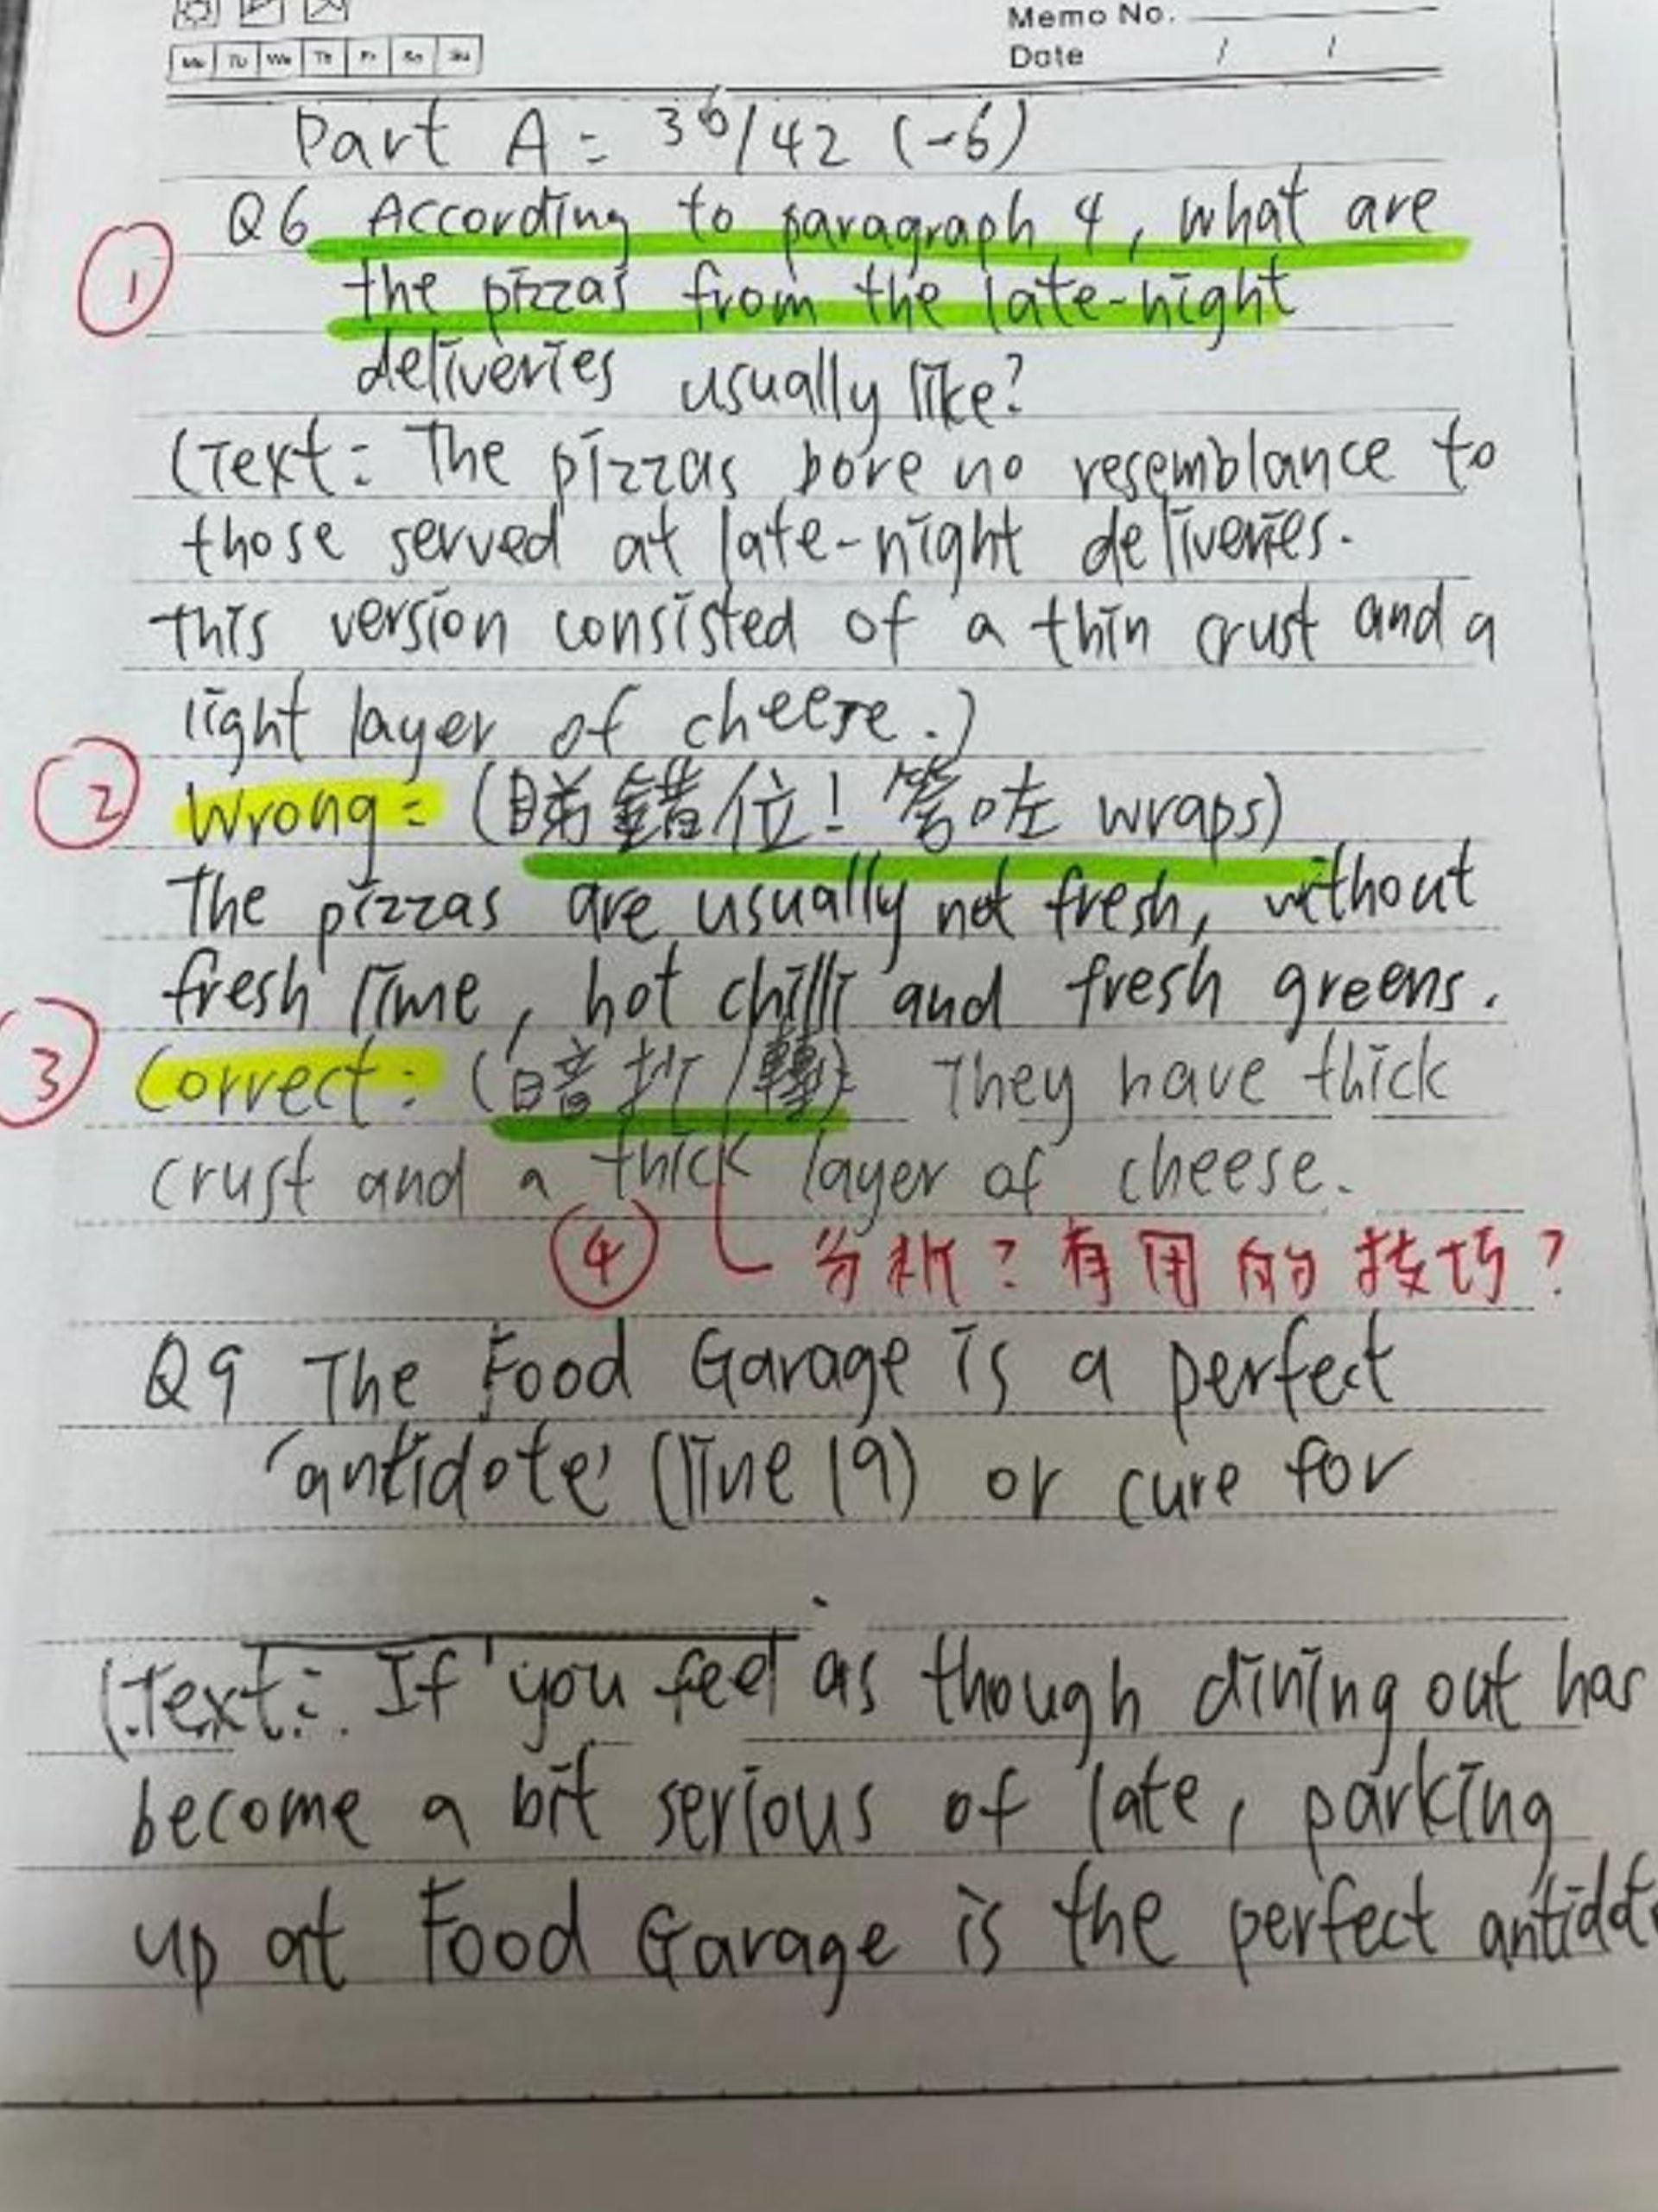 Memo No.
Mo Tu We Th Fr Sa Su
Date / /
Part A = 36/42 (-6)
① Q6 According to paragraph 4, what are
the pizzas from the late-night
deliveries usually like?
(Text: The pizzas bore no resemblance to
those served at late-night deliveries.
This version consisted of a thin crust and a
light layer of cheese.)
② Wrong: (睇錯位! 答咗 wraps)
The pizzas are usually not fresh, without
fresh lime, hot chilli and fresh greens.
③ Correct: (暗抄/轉) They have thick
crust and a thick layer of cheese.
④ 分析? 有用的技巧?
Q9 The Food Garage is a perfect
'antidote' (line 19) or cure for
.
(Text: If you feel as though dining out has
become a bit serious of late, parking
up at Food Garage is the perfect antidot